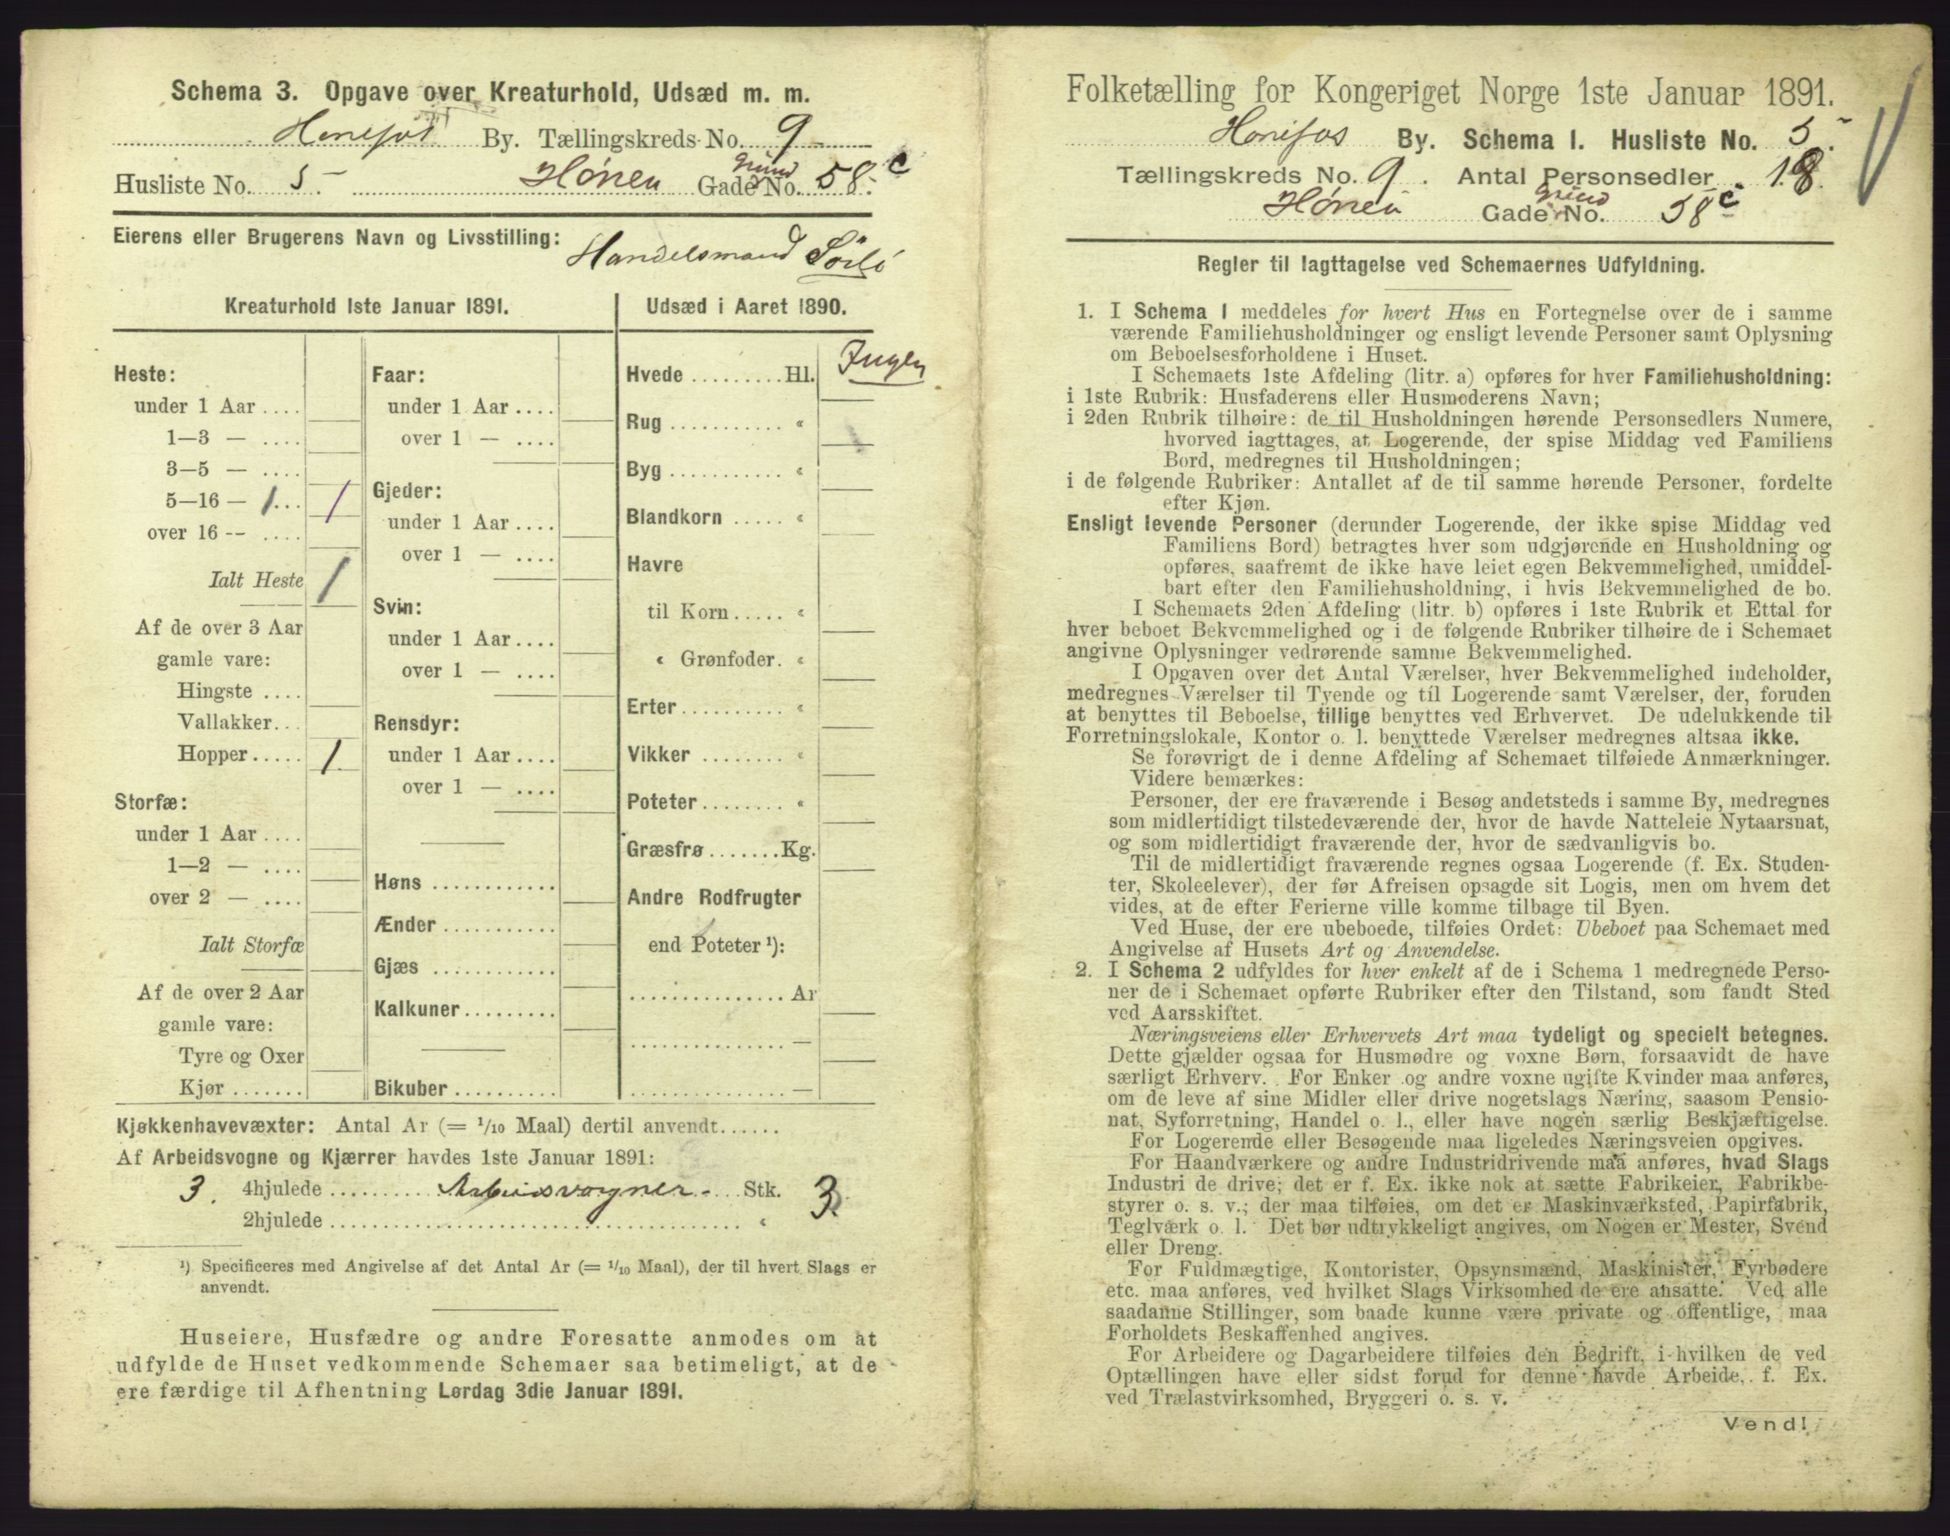 Schema 3. Opgave over Kreaturhold, Udsæd m. m.
Hønefos By. Tællingskreds No. 9
Husliste No. 5 Hønen Grund Gade No. 58 c
Eierens eller Brugerens Navn og Livsstilling: Handelsmand
Kreaturhold 1ste Januar 1891.
Heste:
under 1 Aar ....
1—3 — ....
3—5 — ....
5—16 — 1... 1
over 16 -- ....
Ialt Heste 1
Af de over 3 Aar
gamle vare:
Hingste ....
Vallakker...
Hopper..... 1
Storfæ:
under 1 Aar ....
1—2 — ....
over 2 — ....
Ialt Storfæ
Af de over 2 Aar
gamle vare:
Tyre og Oxer
Kjør .......
Faar:
under 1 Aar ....
over 1 — ....
Gjeder:
under 1 Aar ....
over 1 — ....
Svin:
under 1 Aar ....
over 1 — ....
Rensdyr:
under 1 Aar ....
over 1 — ....
Høns ............
Ænder ...........
Gjæs ............
Kalkuner.........
Bikuber ..........
Udsæd i Aaret 1890.
Ingen
Hvede .........Hl.
Rug ........... «
Byg ........... «
Blandkorn ..... «
Havre
til Korn..... «
« Grønfoder. «
Erter.......... «
Vikker ........ «
Poteter........ «
Græsfrø.......Kg.
Andre Rodfrugter
end Poteter ¹):
............... Ar
............... —
............... —
Kjøkkenhavevæxter: Antal Ar (= ¹/₁₀ Maal) dertil anvendt......
Af Arbeidsvogne og Kjærrer havdes 1ste Januar 1891:
3. 4hjulede ........ Arbeidsvogner Stk. 3
2hjulede ........................ «
¹) Specificeres med Angivelse af det Antal Ar (= ¹/₁₀ Maal), der til hvert Slags er
anvendt.
Huseiere, Husfædre og andre Foresatte anmodes om at
udfylde de Huset vedkommende Schemaer saa betimeligt, at de
ere færdige til Afhentning Lørdag 3die Januar 1891.
Folketælling for Kongeriget Norge 1ste Januar 1891.
Hønefos By. Schema I. Husliste No. 5
Tællingskreds No. 9. Antal Personsedler 18.
Hønen Grund Gade No. 58 c
Regler til Iagttagelse ved Schemaernes Udfyldning.
1. I Schema I meddeles for hvert Hus en Fortegnelse over de i samme
værende Familiehusholdninger og ensligt levende Personer samt Oplysning
om Beboelsesforholdene i Huset.
I Schemaets 1ste Afdeling (litr. a) opføres for hver Familiehusholdning:
i 1ste Rubrik: Husfaderens eller Husmoderens Navn;
i 2den Rubrik tilhøire: de til Husholdningen hørende Personsedlers Numere,
hvorved iagttages, at Logerende, der spise Middag ved Familiens
Bord, medregnes til Husholdningen;
i de følgende Rubriker: Antallet af de til samme hørende Personer, fordelte
efter Kjøn.
Ensligt levende Personer (derunder Logerende, der ikke spise Middag ved
Familiens Bord) betragtes hver som udgjørende en Husholdning og
opføres, saafremt de ikke have leiet egen Bekvemmelighed, umiddel-
bart efter den Familiehusholdning, i hvis Bekvemmelighed de bo.
I Schemaets 2den Afdeling (litr. b) opføres i 1ste Rubrik et Ettal for
hver beboet Bekvemmelighed og i de følgende Rubriker tilhøire de i Schemaet
angivne Oplysninger vedrørende samme Bekvemmelighed.
I Opgaven over det Antal Værelser, hver Bekvemmelighed indeholder,
medregnes Værelser til Tyende og til Logerende samt Værelser, der, foruden
at benyttes til Beboelse, tillige benyttes ved Erhvervet. De udelukkende til
Forretningslokale, Kontor o. l. benyttede Værelser medregnes altsaa ikke.
Se forøvrigt de i denne Afdeling af Schemaet tilføiede Anmærkninger.
Videre bemærkes:
Personer, der ere fraværende i Besøg andetsteds i samme By, medregnes
som midlertidigt tilstedeværende der, hvor de havde Natteleie Nytaarsnat,
og som midlertidigt fraværende der, hvor de sædvanligvis bo.
Til de midlertidigt fraværende regnes ogsaa Logerende (f. Ex. Studen-
ter, Skoleelever), der før Afreisen opsagde sit Logis, men om hvem det
vides, at de efter Ferierne ville komme tilbage til Byen.
Ved Huse, der ere ubeboede, tilføies Ordet: Ubeboet paa Schemaet med
Angivelse af Husets Art og Anvendelse.
2. I Schema 2 udfyldes for hver enkelt af de i Schema 1 medregnede Perso-
ner de i Schemaet opførte Rubriker efter den Tilstand, som fandt Sted
ved Aarsskiftet.
Næringsveiens eller Erhvervets Art maa tydeligt og specielt betegnes.
Dette gjælder ogsaa for Husmødre og voxne Børn, forsaavidt de have
særligt Erhverv. For Enker og andre voxne ugifte Kvinder maa anføres,
om de leve af sine Midler eller drive nogetslags Næring, saasom Pensio-
nat, Syforretning, Handel o. l., eller have nogen særlig Beskjæftigelse.
For Logerende eller Besøgende maa ligeledes Næringsveien opgives.
For Haandværkere og andre Industridrivende maa anføres, hvad Slags
Industri de drive; det er f. Ex. ikke nok at sætte Fabrikeier, Fabrikbe-
styrer o. s. v.; der maa tilføies, om det er Maskinværksted, Papirfabrik,
Teglværk o. l. Det bør udtrykkeligt angives, om Nogen er Mester, Svend
eller Dreng.
For Fuldmægtige, Kontorister, Opsynsmænd, Maskinister, Fyrbødere
etc. maa anføres, ved hvilket Slags Virksomhed de ere ansatte. Ved alle
saadanne Stillinger, som baade kunne være private og offentlige, maa
Forholdets Beskaffenhed angives.
For Arbeidere og Dagarbeidere tilføies den Bedrift, i hvilken de ved
Optællingen have eller sidst forud for denne havde Arbeide, f. Ex.
ved Trælastvirksomhed, Bryggeri o. s. v.
Vend!